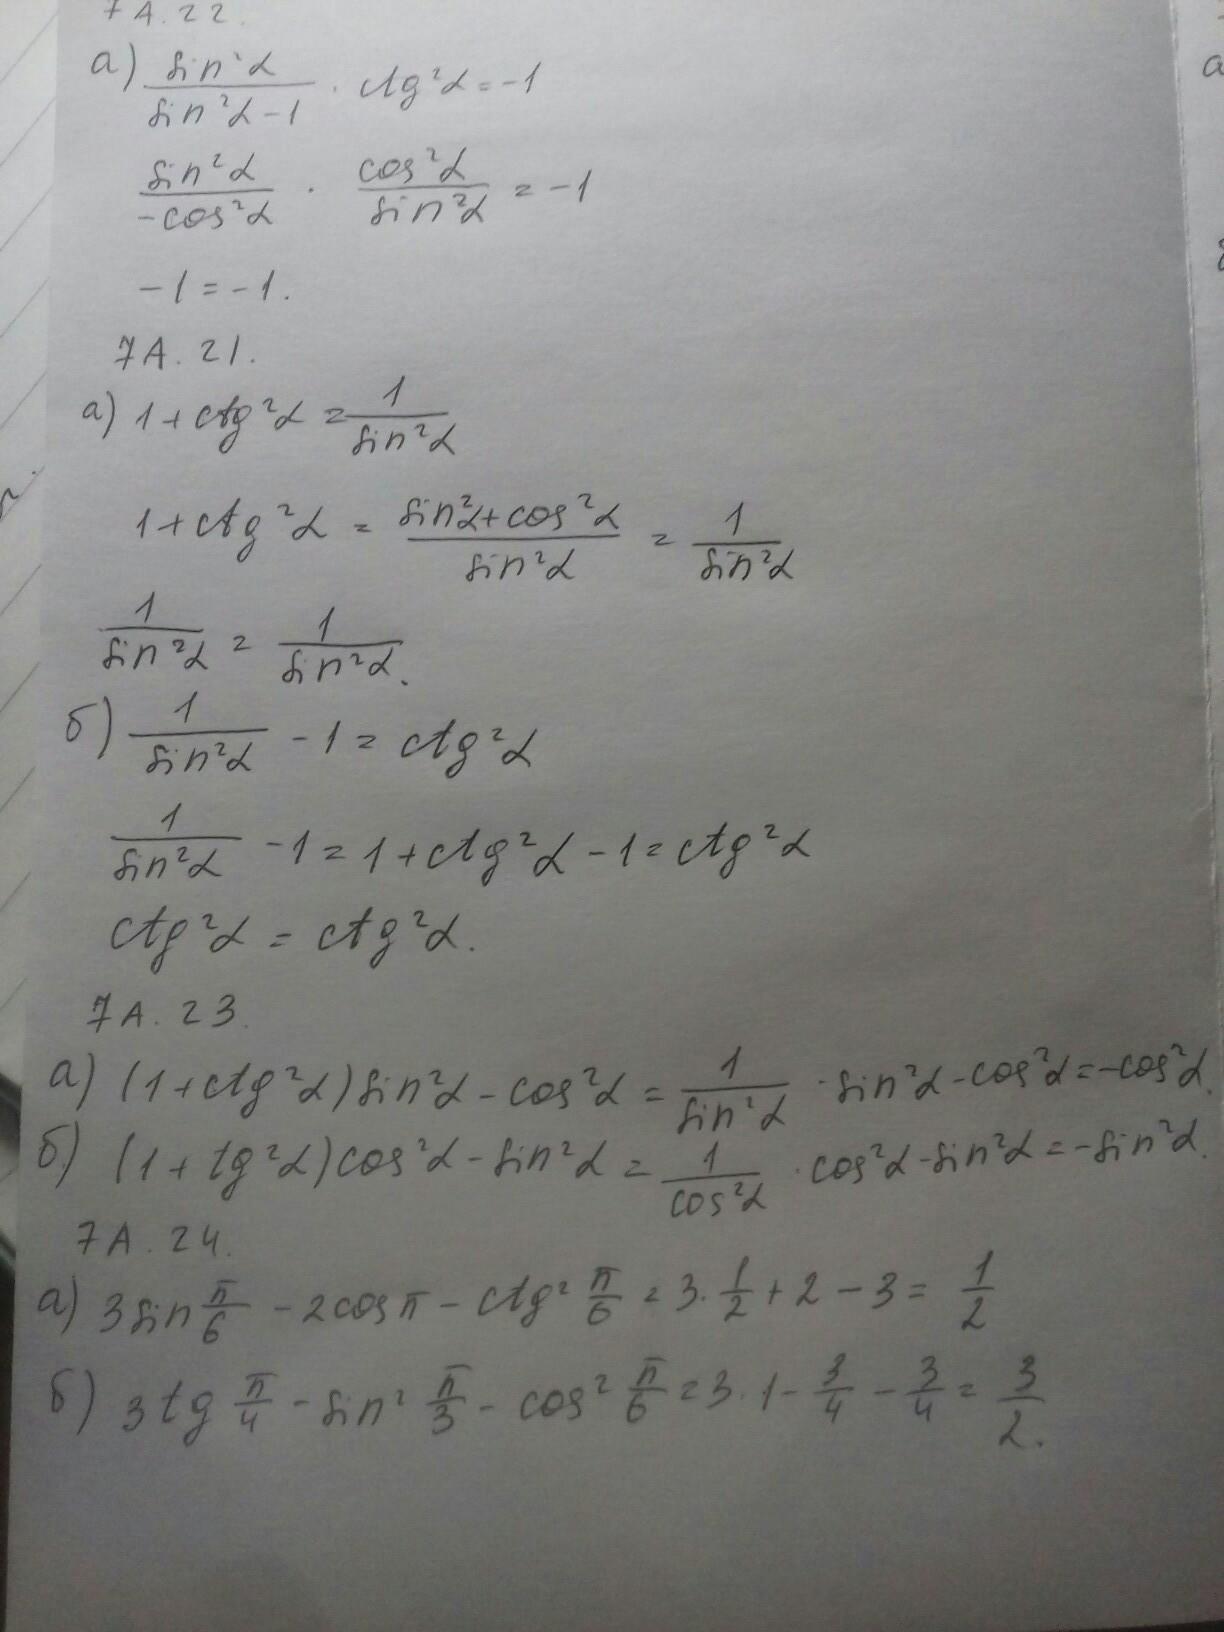 7A.22.
а) sin²α/(sin²α-1) · ctg²α = -1
sin²α/(-cos²α) · cos²α/sin²α = -1
-1 = -1.
7A.21.
а) 1+ctg²α = 1/sin²α
1+ctg²α = (sin²α+cos²α)/sin²α = 1/sin²α
1/sin²α = 1/sin²α.
б) 1/sin²α - 1 = ctg²α
1/sin²α - 1 = 1+ctg²α - 1 = ctg²α
ctg²α = ctg²α.
7A.23.
а) (1+ctg²α)sin²α - cos²α = 1/sin²α · sin²α - cos²α = -cos²α.
б) (1+tg²α)cos²α - sin²α = 1/cos²α · cos²α - sin²α = -sin²α.
7A.24.
а) 3sin π/6 - 2cosπ - ctg² π/6 = 3·1/2 + 2 - 3 = 1/2
б) 3tg π/4 - sin² π/3 - cos² π/6 = 3·1 - 3/4 - 3/4 = 3/2.